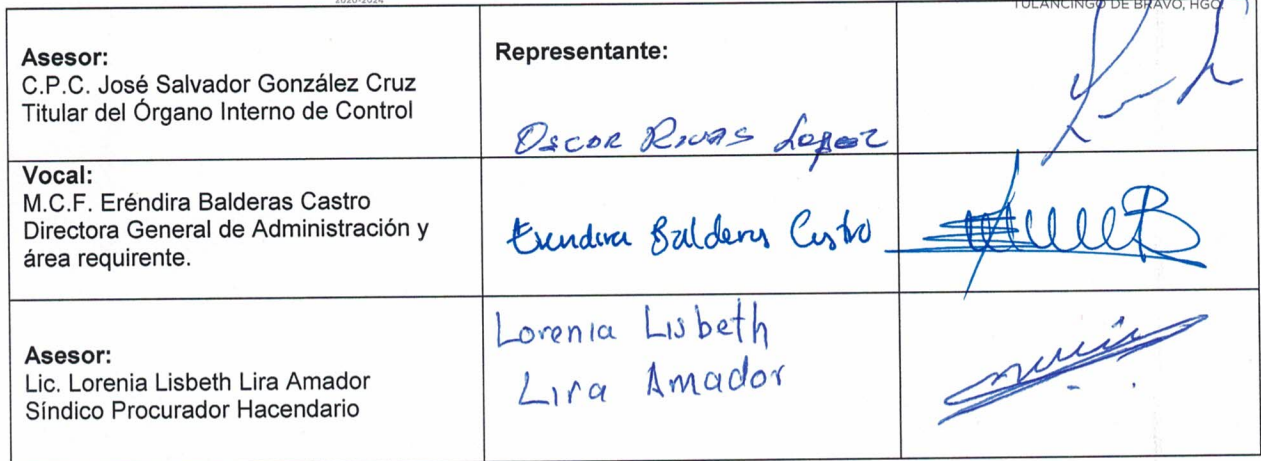 2020-2024
TULANCINGO DE BRAVO, HGO.
Asesor:
C.P.C. José Salvador González Cruz
Titular del Órgano Interno de Control
Representante:
Oscar Rivas Lopez
Vocal:
M.C.F. Eréndira Balderas Castro
Directora General de Administración y
área requirente.
Erendira Balderas Castro
Asesor:
Lic. Lorenia Lisbeth Lira Amador
Síndico Procurador Hacendario
Lorenia Lisbeth
Lira Amador